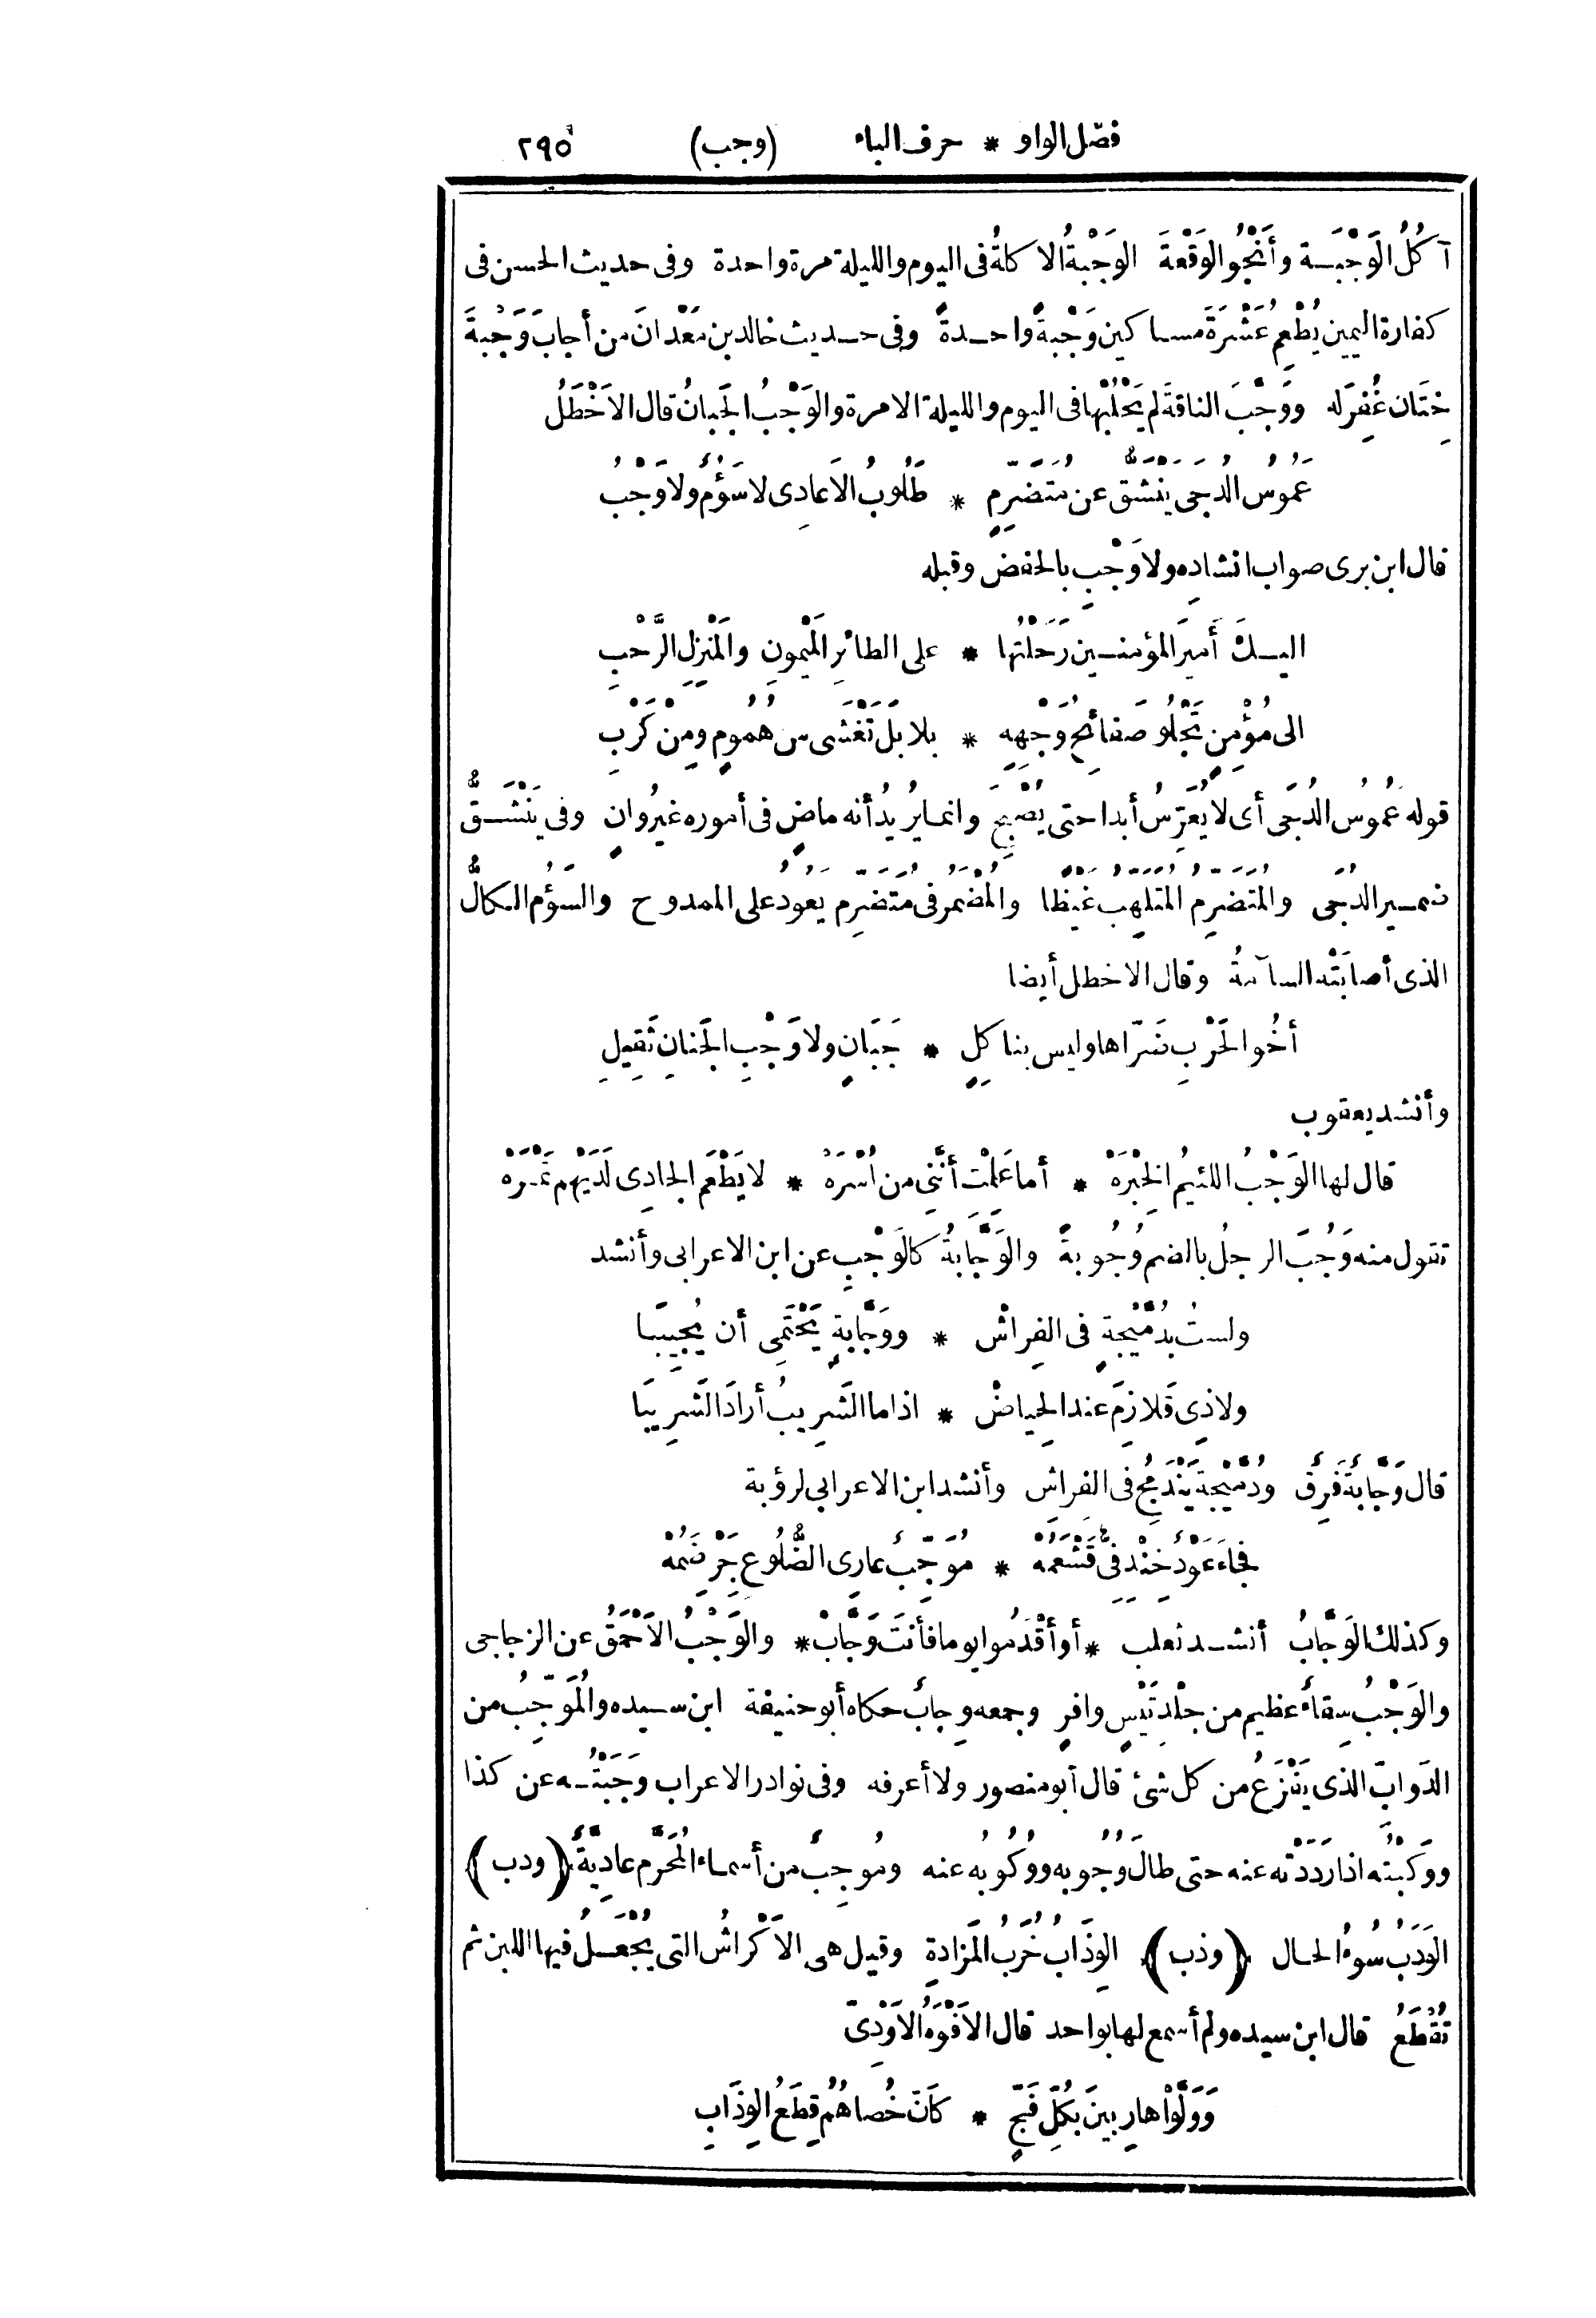 فصل الواو * حرف الباء (وجب) ٢٩٥
آكُلُ الوَجْبَة وأَنْجُو الوَقْعةَ الوَجْبةُ الاكلةُ فى اليوم والليلة مرة واحدة وفى حديث الحسن فى
كفارة اليمين يُطْعِمُ عَشْرَةَ مساكين وَجْبةً واحدةً وفى حديث خالد بن مَعْدانَ من أجابَ وَجْبةَ
خِتَان غُفِرَ له ووَجْبَ الناقةَ لم يَحْلُبْها فى اليوم والليلة الا مرة والوَجْبُ الجَبانُ قال الاَخْطَلُ
عَمُوسُ الدُجَى يَنْشَقُّ عن مُتَضَرِّمٍ * طَلُوبُ الاَعادِى لا سَؤُمٌ ولا وَجْبُ
قال ابن برى صواب انشادِه ولا وَجْبِ بالخفض وقبله
اليكَ أَميرَ المؤمنين رَحَلْتُها * على الطائرِ المَيْمونِ والمَنْزِلِ الرَّحْبِ
الى مُؤْمِنٍ تَجْلُو صَفائحُ وَجْهِهِ * بلابلَ تَغْشَى من هُمُومٍ ومِنْ كَرْبِ
قوله عَمُوسُ الدُجَى أى لا يُعَرِّسُ أبدا حتى يُصْبِحَ وانما يريدُ أنه ماضٍ فى أموره غيرُ وانٍ وفى يَنْشَقُّ
ضمير الدُجَى والمُتَضَرِّمُ المُتَلَهِّبُ غَيْظًا والمُضْمَرُ فى مُتَضَرِّم يَعُودُ على الممدوح والسَؤُم الكالُّ
الذى أصابَتْه السآمةُ وقال الاخطل أيضا
أَخُو الحَرْبِ ضَرّاها وليس بناكلٍ * جَبَانٍ ولا وَجْبِ الجَنانِ ثَقِيلِ
وأنشد يعقوب
قال لها الوَجْبُ اللئيمُ الخِبْرَهْ * أما عَلِمْتِ أنَّنى من أُسْرَهْ * لا يَطْعَم الجادِى لَدَيْهِم تَمْرَهْ
تقول منه وَجُبَ الرجلُ بالضم وُجُوبةً والوَجَّابةُ كالوَجْبِ عن ابن الاعرابى وأنشد
ولستُ بدُمَّيْجةٍ فى الفِراشْ * ووَجَّابةٍ يَحْتَمِى أن يُجِيبَا
ولا ذِى قَلازِمَ عند الحِياضْ * اذا ما الشَرِيبُ أرادَ الشَرِيبَا
قال وَجَّابةٌ فَرِقٌ ودُمَّيْجةٌ يَنْدَمِجُ فى الفراش وأنشد ابن الاعرابى لرؤبة
فجاءَ عَوْدٌ خِنْدِفىٌّ قَشْعَمُهْ * مُوَجِّبٌ عارِى الضُّلُوع جَرْضَمُهْ
وكذلك الوَجَّابُ أنشد ثعلب * أو أَقْدَمُوا يوما فأنتَ وَجَّابْ * والوَجْبُ الاَحْمَقُ عن الزجاجى
والوَجْبُ سِقاءٌ عظيم من جِلْدِ تَيْسٍ وافرٍ وجمعه وِجابٌ حكاه أبو حنيفة ابن سيده والمُوَجِّبُ من
الدَوابّ الذى يَفْزَعُ من كل شئ قال أبو منصور ولا أعرفه وفى نوادر الاعراب وَجَبْتُه عن كذا
ووَكَبْتُه اذا رَدَدْته عنه حتى طالَ وُجُوبه ووُكُوبُه عنه ومُوجِبٌ من أسماء المُحَرَّم عادِيَّةٌ (ودب)
الوَدَبُ سُوءُ الحال (وذب) الوِذَابُ خُرَبُ المَزادةِ وقيل هى الاَكْراشُ التى يُجْعَلُ فيها اللبن ثم
تُقْطَعُ قال ابن سيده ولم أسمع لها بواحد قال الاَفْوَهُ الاَوْدِىّ
وَوَلَّوْا هارِبينَ بكُلِّ فَجٍّ * كأنَّ خُصاهُمُ قِطَعُ الوِذَابِ